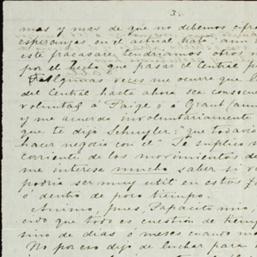 3.
mas y mas de que no debemos cifrar
esperanzas en el actual
este fracasare tendriamos otros
por el Istmo que pasar el Central
algunas veces me ocurre que
del Central hasta ahora sea
voluntad á Paige ó á Grant
y me acuerdo involuntariamente
que te dijo Schuyler: "que todavia
hacer negocio con él" Te suplico
corriente de los movimientos de
me interesa mucho saber si
podria ser muy util en estos
ó dentro de poco tiempo.
Animo, pues, Papacito mio
que todo es cuestión de
sino de dias ó meses cuando
No por eso dejo de luchar para